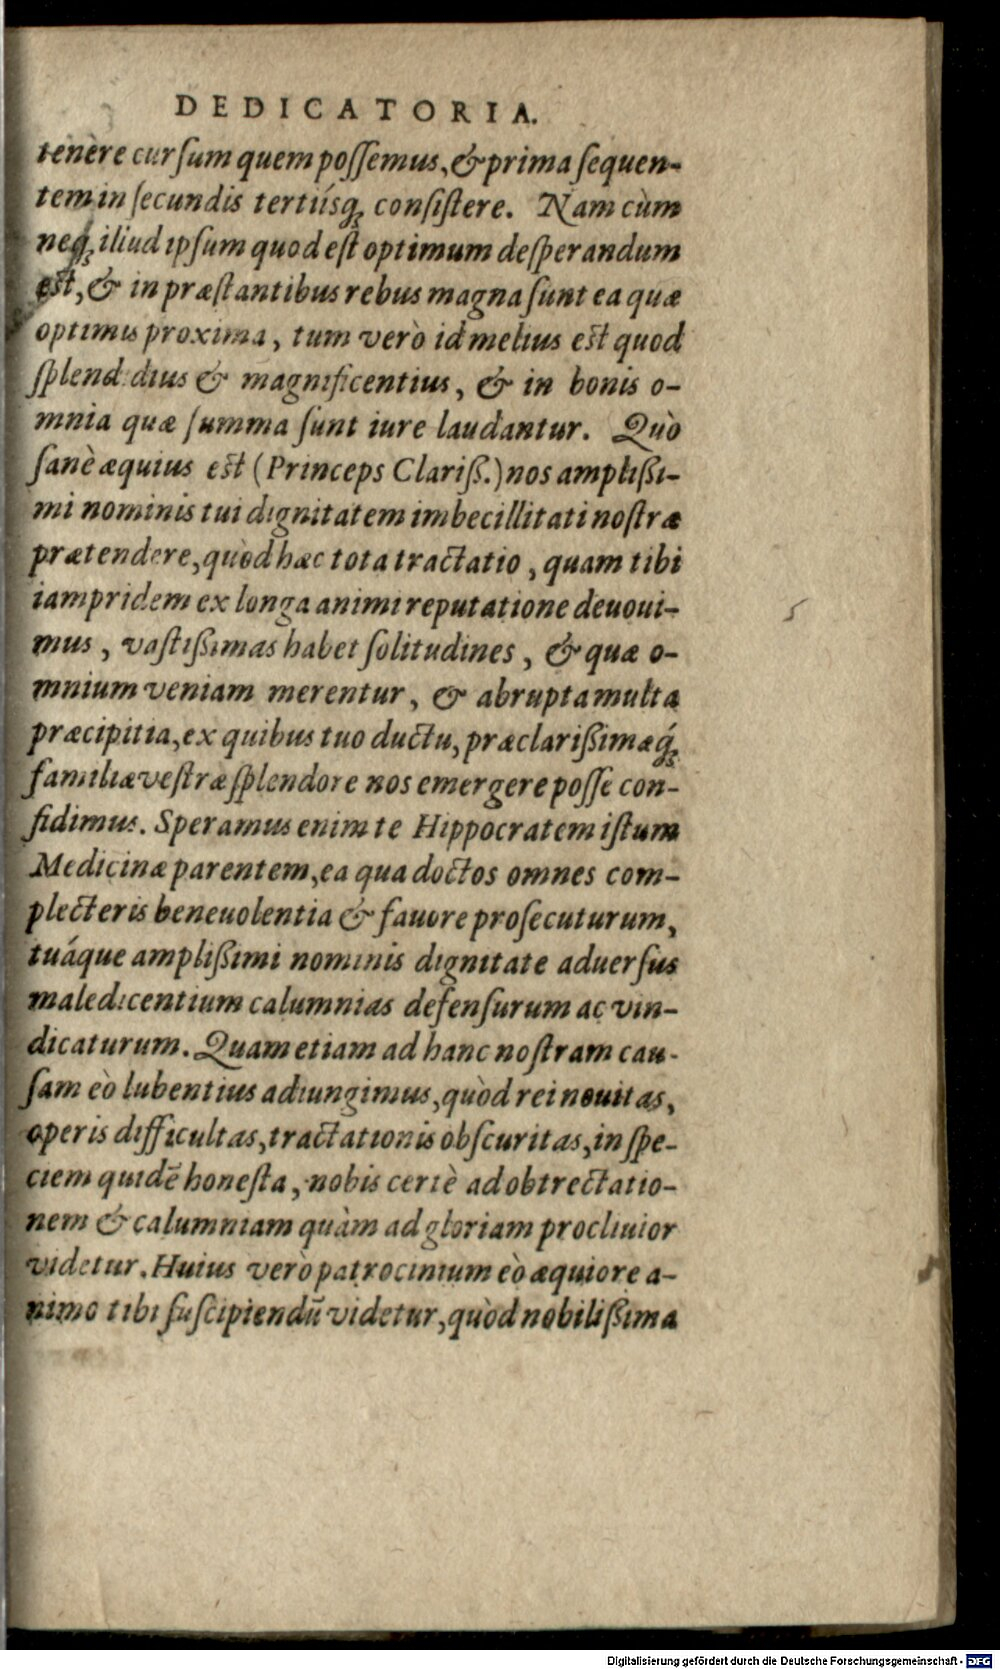 DEDICATORIA.
tenère curſum quem poſſemus, & prima ſequen-
tem in ſecundis tertiísq; conſiſtere. Nam cùm
neq; illud ipſum quod eſt optimum deſperandum
eſt, & in præſtantibus rebus magna ſunt ea quæ
optimis proxima, tum verò id melius eſt quod
ſplendidius & magnificentius, & in bonis o-
mnia quæ ſumma ſunt iure laudantur. Quò
ſanè æquius eſt (Princeps Clariß.) nos amplißi-
mi nominis tui dignitatem imbecillitati noſtræ
prætendere, quòd hæc tota tractatio, quam tibi
iampridem ex longa animi reputatione deuoui-
mus, vaſtißimas habet ſolitudines, & quæ o-
mnium veniam merentur, & abrupta multa
præcipitia, ex quibus tuo ductu, præclarißimæq́;
familiæ veſtræ ſplendore nos emergere poſſe con-
fidimus. Speramus enim te Hippocratem iſtum
Medicinæ parentem, ea qua doctos omnes com-
plecteris beneuolentia & fauore proſecuturum,
tuáque amplißimi nominis dignitate aduerſus
maledicentium calumnias defenſurum ac vin-
dicaturum. Quam etiam ad hanc noſtram cau-
ſam eò lubentius adiungimus, quòd rei nouitas,
operis difficultas, tractationis obſcuritas, in ſpe-
ciem quidẽ honeſta, nobis certè ad obtrectatio-
nem & calumniam quàm ad gloriam procliuior
videtur. Huius verò patrocinium eò æquiore a-
nimo tibi ſuſcipiendũ videtur, quòd nobilißima
5
Digitalisierung gefördert durch die Deutsche Forschungsgemeinschaft - DFG